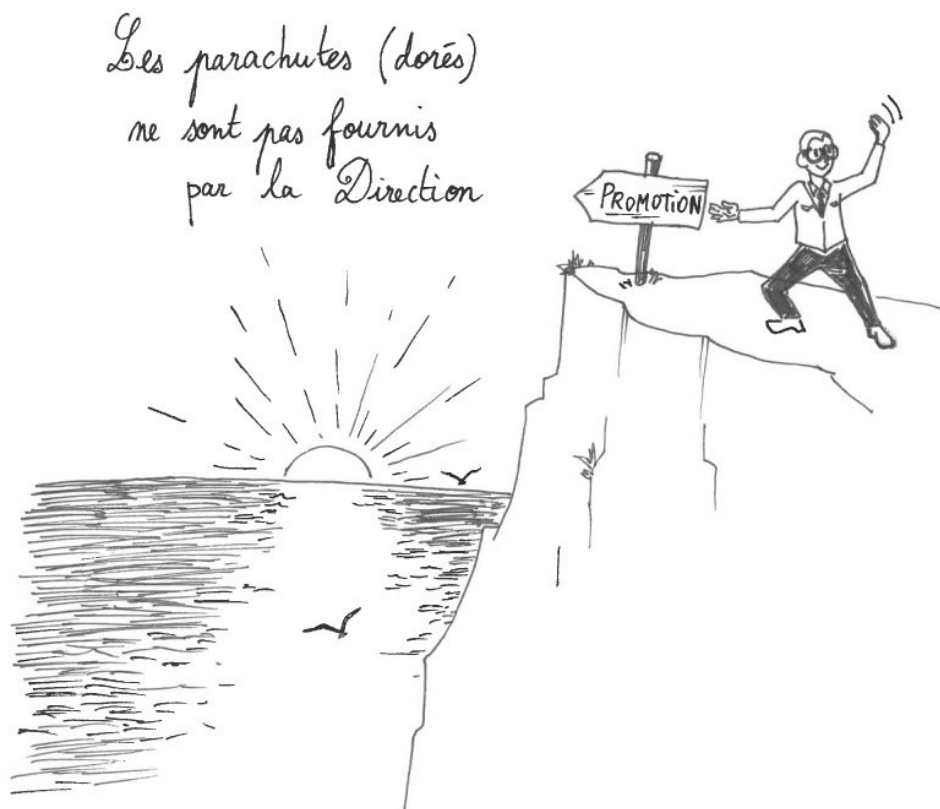 Les parachutes (dorés)
ne sont pas fournis
par la Direction
PROMOTION